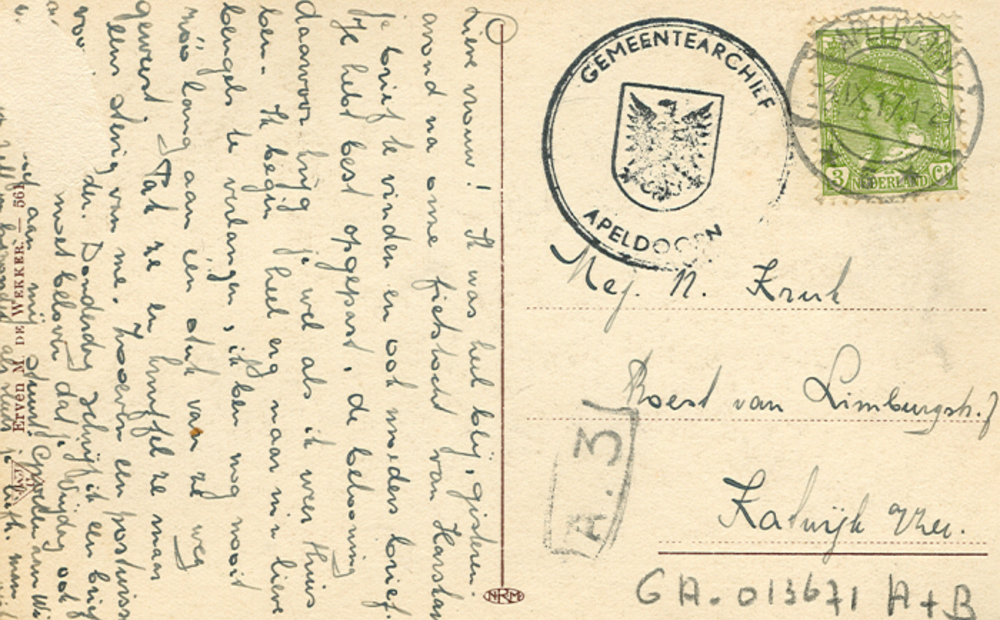 Lieve vrouw! Ik was heel blij, gisteren-
avond na onze fietstocht van Harskamp
je brief te vinden en ook moeders brief.
Je hebt best opgepast, de belooning
daarvoor krijg je wel als ik weer thuis
ben. Ik begin heel erg naar m'n lieve
bengels te verlangen, ik ben nog nooit
zóó lang aan één stuk van ze weg
geweest. Pak ze en knuffel ze maar
eens stevig van me.
voor
der. Donderdag schrijf ik een brief
moet beloven dat je Vrijdag ook
aan mij stuurt.
Erven M. DE WEKKER. — 561
NRM
GEMEENTEARCHIEF
APELDOORN
APELDOORN
IX.17.1-2
3 Ct
NEDERLAND
Mej. N. Kruk
Roest van Limburgstr. 7
Katwijk Zee.
A.3
GA. 013671 A+B